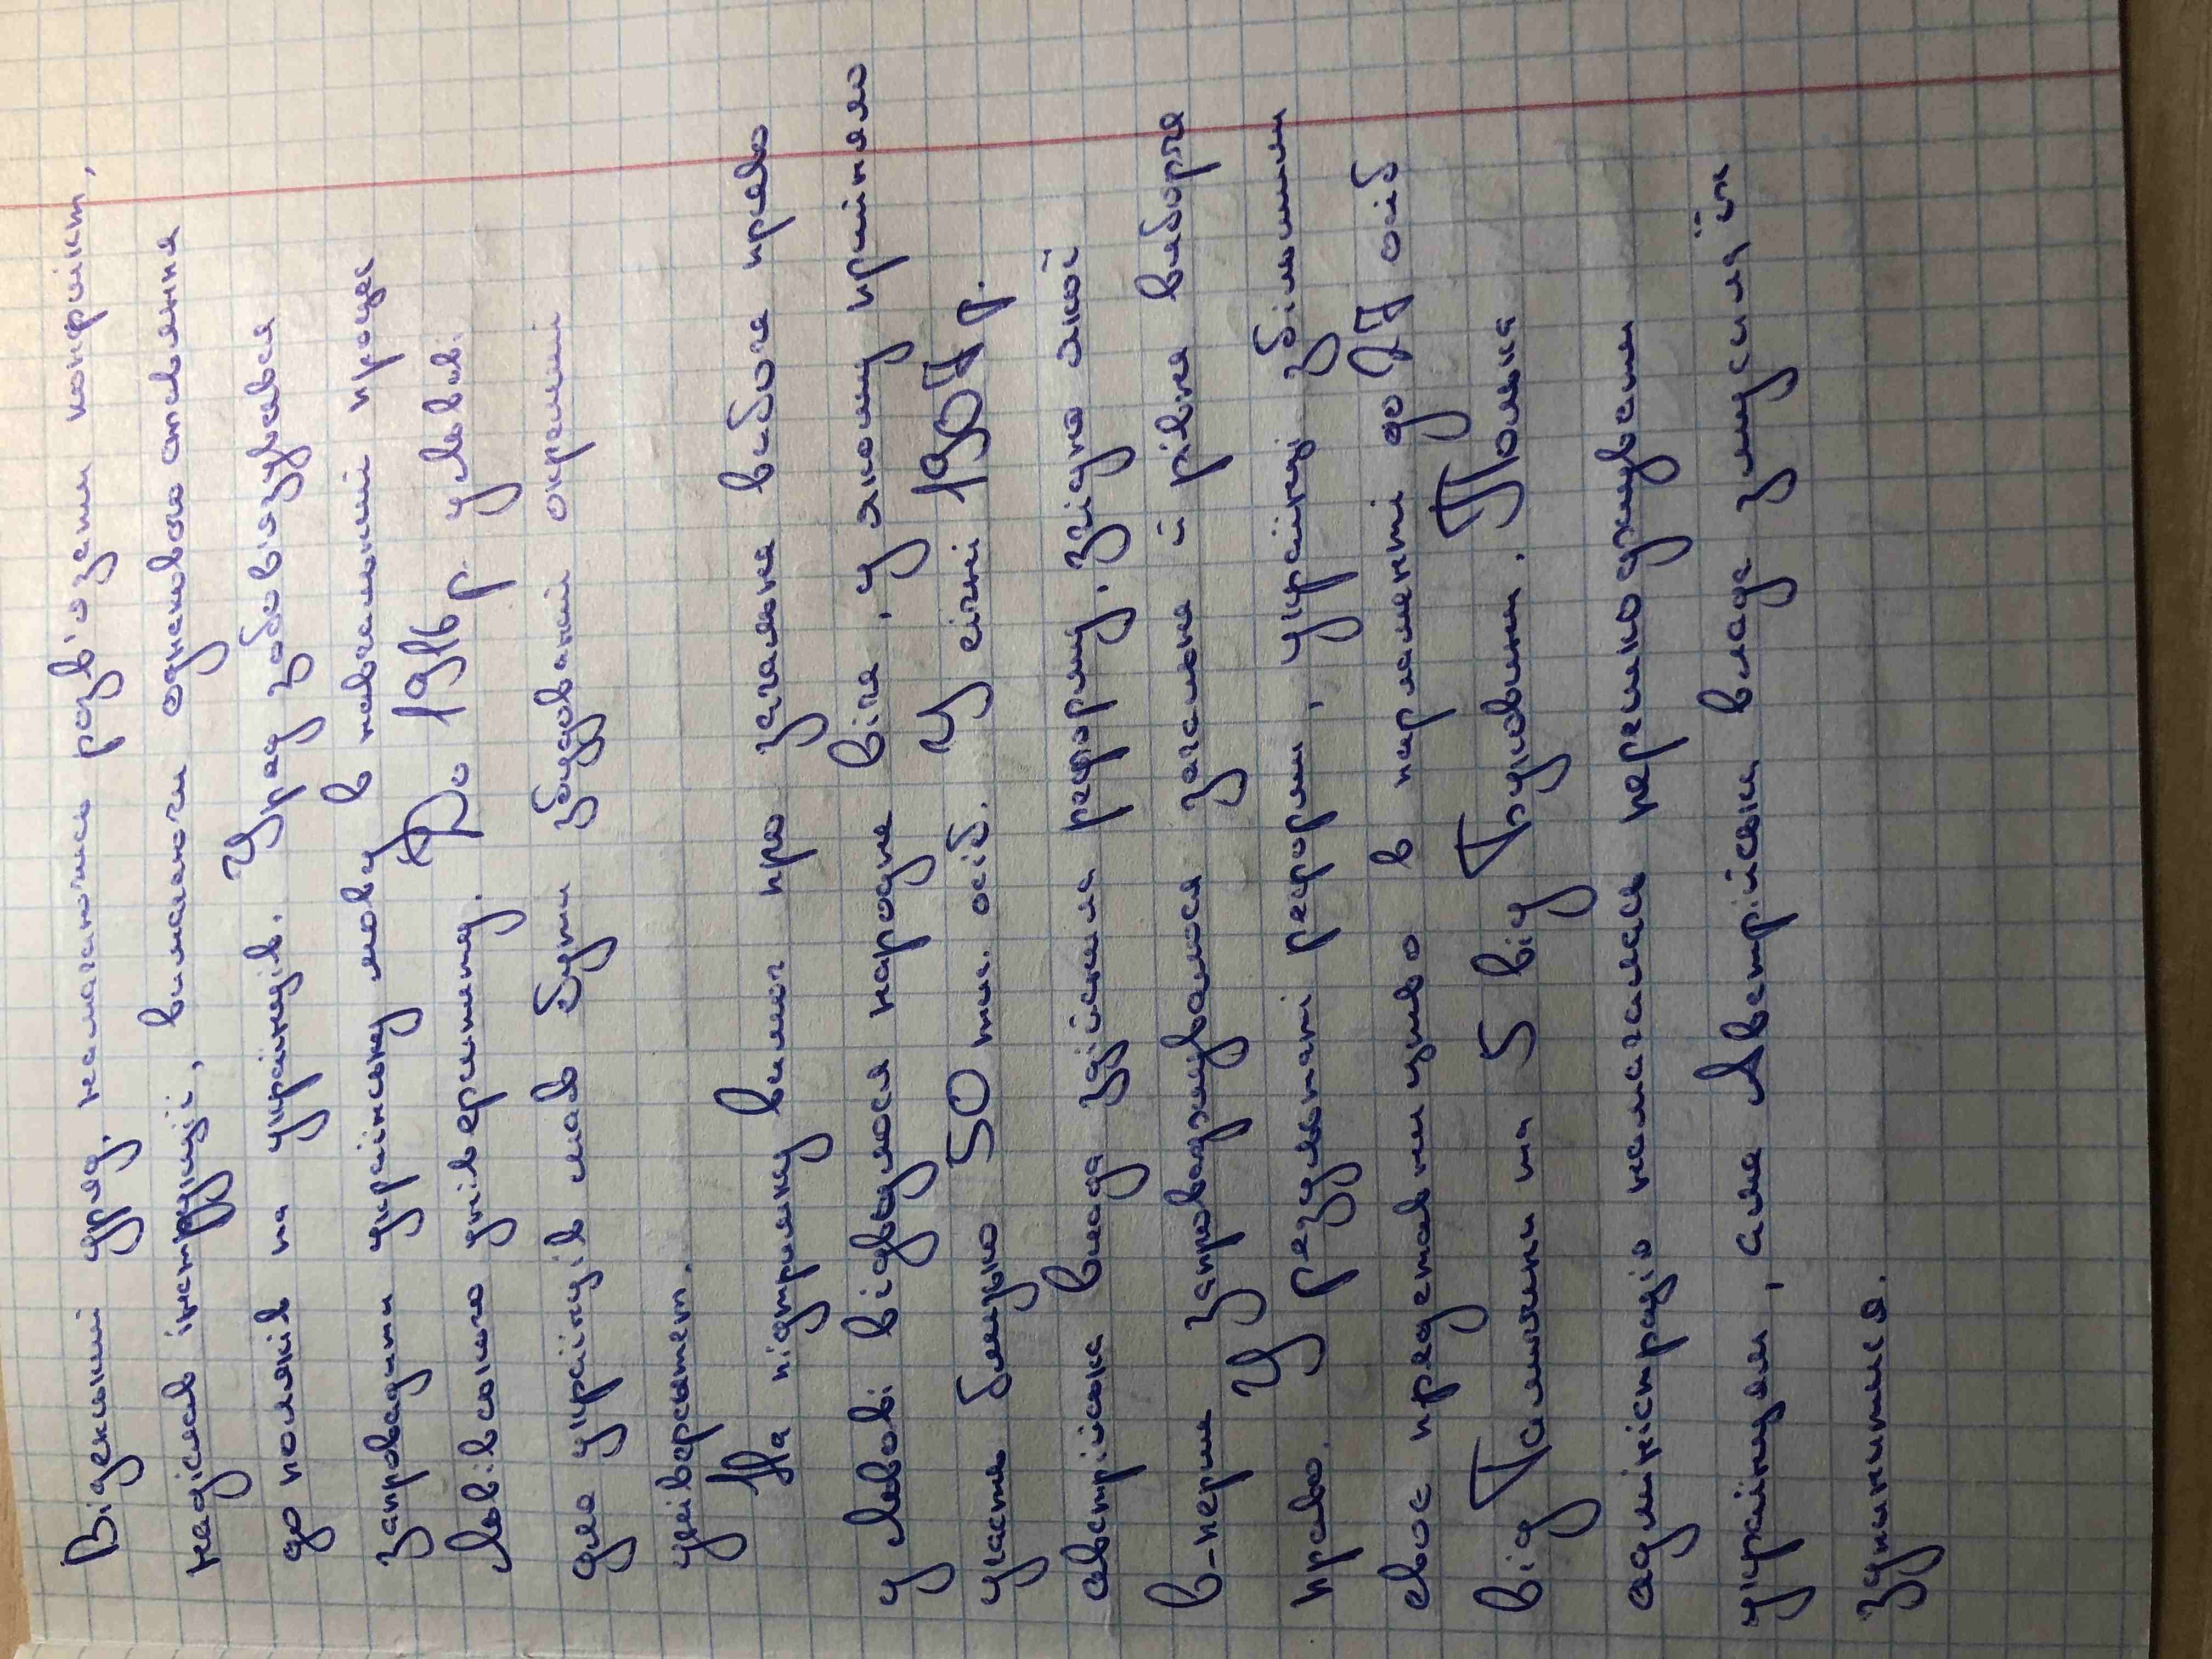 Віденський уряд, намагаючись розв'язати конфлікт,
надіслав інструкції, вимагаючи однакового ставлення
до поляків та українців. Уряд зобов'язувався
запровадити українську мову в навчальний процес
Львівського університету. До 1916 р. у Львові
для українців мав бути збудований окремий
університет.
На підтримку вимог про загальне виборче право
у Львові відбулося народне віче, у якому прийняло
участь близько 50 тис. осіб. У січні 1907 р.
австрійська влада здійснила реформу. Згідно якої
в-перше запроваджувалося загальне й рівне виборче
право. У результаті реформи, українці збільшили
своє представництво в парламенті до 27 осіб
від Галичини та 5 від Буковини. Польська
адміністрація намагалась перешкоджувати
українцям, але Австрійська влада змусила їх
зупинитися.